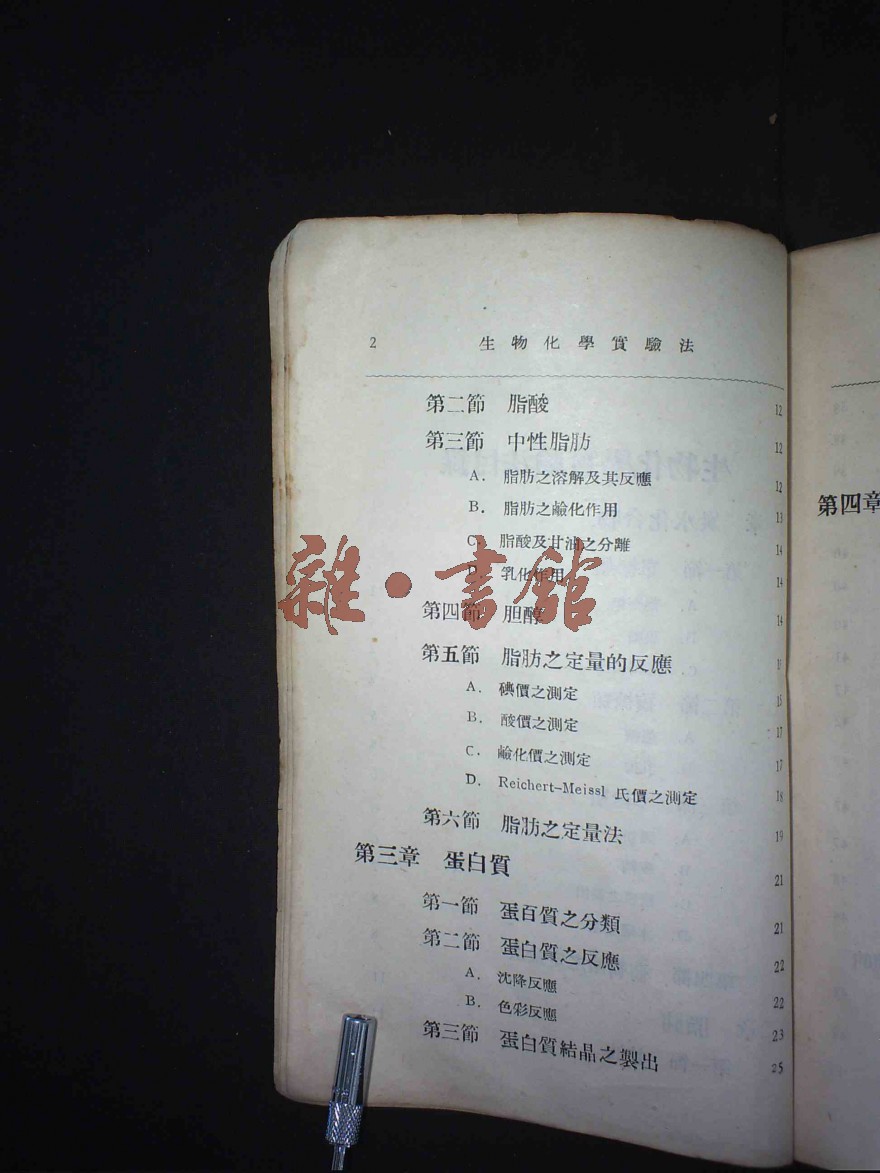 2 生物化學實驗法
第二節 脂酸 12
第三節 中性脂肪 12
A. 脂肪之溶解及其反應 12
B. 脂肪之鹼化作用 13
C. 脂酸及甘油之分離 14
D. 乳化作用 14
第四節 胆醇 14
第五節 脂肪之定量的反應
A. 碘價之測定
B. 酸價之測定 17
C. 鹼化價之測定 17
D. Reichert-Meissl 氏價之測定 18
第六節 脂肪之定量法 19
第三章 蛋白質 21
第一節 蛋百質之分類 21
第二節 蛋白質之反應 22
A. 沈降反應 22
B. 色彩反應 23
第三節 蛋白質結晶之製出 25
第四章
雜·書館